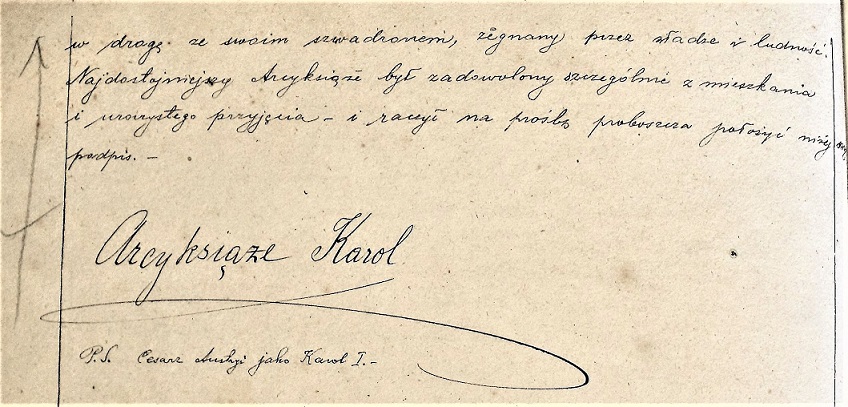 w drogę ze swoim szwadronem, żegnany przez władze i ludność.
Najdostojniejszy Arcyksiąże był zadowolony szczególnie z mieszkania
i uroczystego przyjęcia – i raczył na prośbę proboszcza położyć niżej
podpis. –
Arcyksiąże Karol
P.S. Cesarz Austryi jako Karol I. –